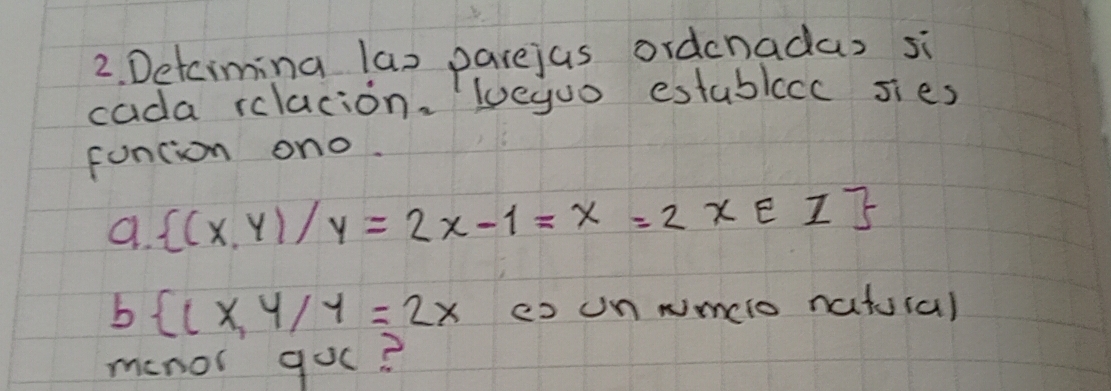 2. Determina las parejas ordenadas si
cada relación. lueguo establece si es
funcion ono.
a. {(x, y) / y = 2x - 1 = x = 2 x E I}
b {( x, y / y = 2x es un numero natural
menor que ?